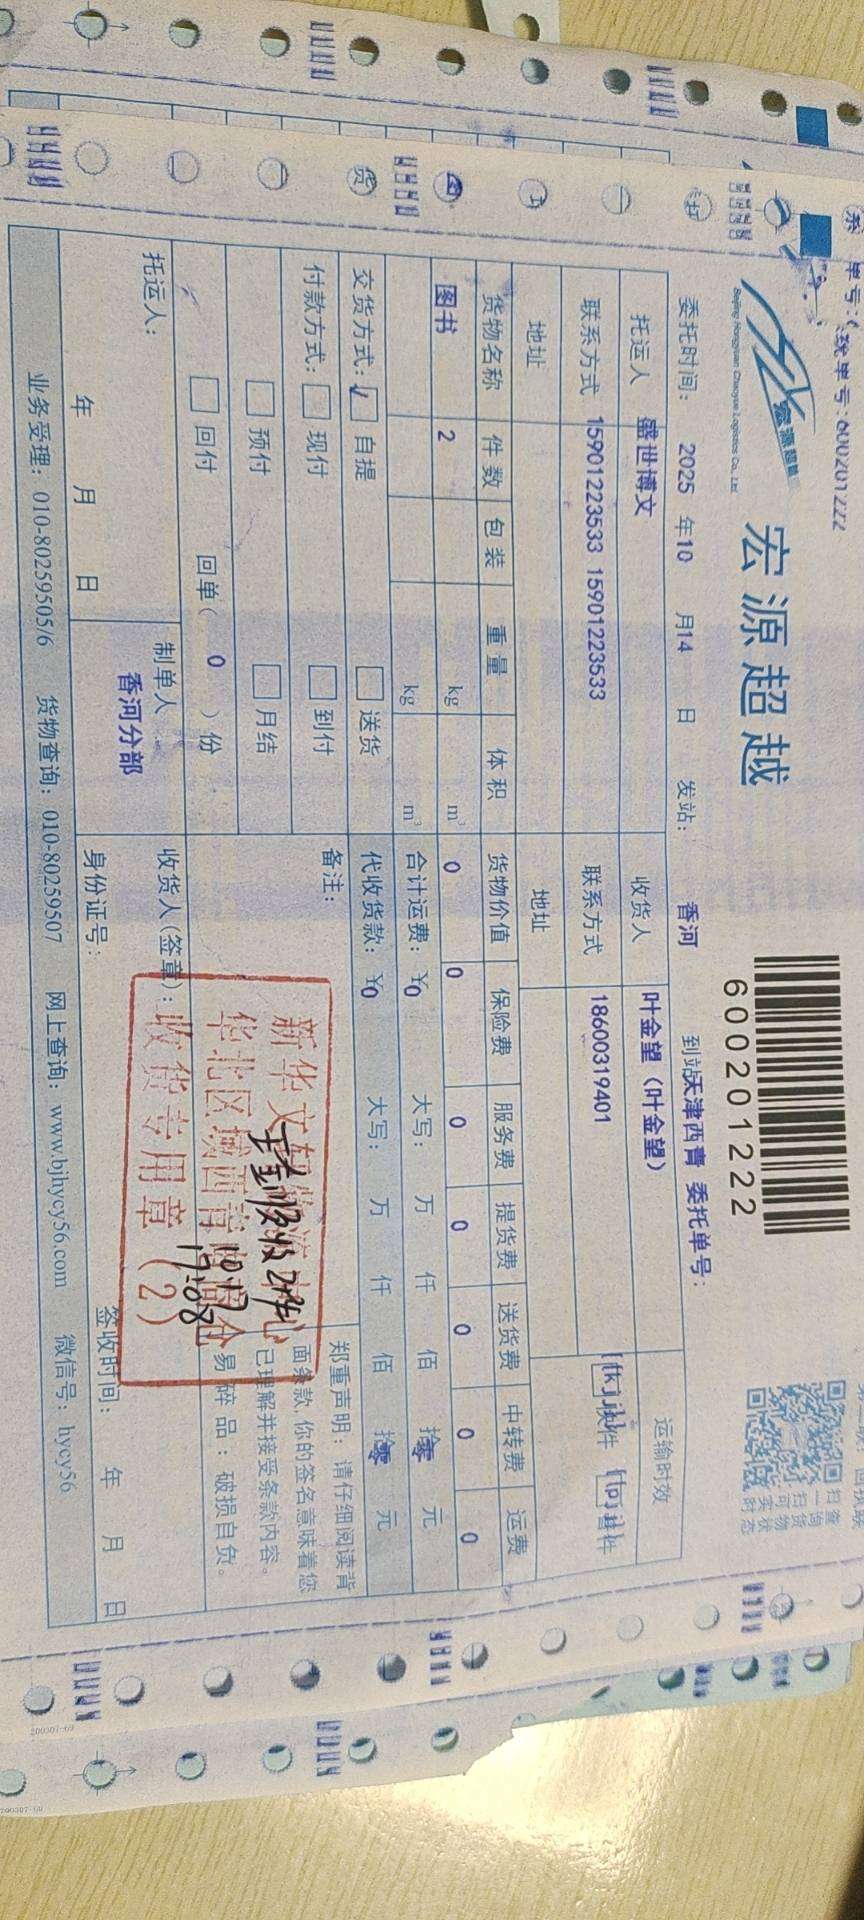 系统单号:600201222
宏源超越
宏源超越
Beijing Hongyuan Chaoyue Logistics Co., Ltd
600201222
扫一扫
查询货物
实时状态
委托时间: 2025 年10 月14 日 发站: 香河 到站天津西青 委托单号:
托运人 盛世博文 收货人 叶金望（叶金望） 运输时效
联系方式 15901223533 15901223533 联系方式 18600319401
地址 地址
货物名称 件数 包装 重量 体积 货物价值 保险费 服务费 提货费 送货费 中转费 运费
图书 2 kg m³ 0 0 0 0 0 0 0
kg m³ 合计运费: ¥0 大写: 万 仟 佰 拾零 元
交货方式: 自提 送货 代收货款: ¥0 大写: 万 仟 佰 拾零 元
付款方式: 现付 到付 备注:
预付 月结
回付 回单( 0 )份
郑重声明: 请仔细阅读背
面条款,你的签名意味着您
已理解并接受条款内容。
易碎品: 破损自负。
托运人: 制单人 收货人(签章):
香河分部
年 月 日 身份证号: 签收时间: 年 月 日
新华文轩
华北区域西青
收货专用章(2)
收2件
10.17
17:08
业务受理: 010-80259505/6 货物查询: 010-80259507 网上查询: www.bjhycy56.com 微信号: hycy56
200307-69
200307-69